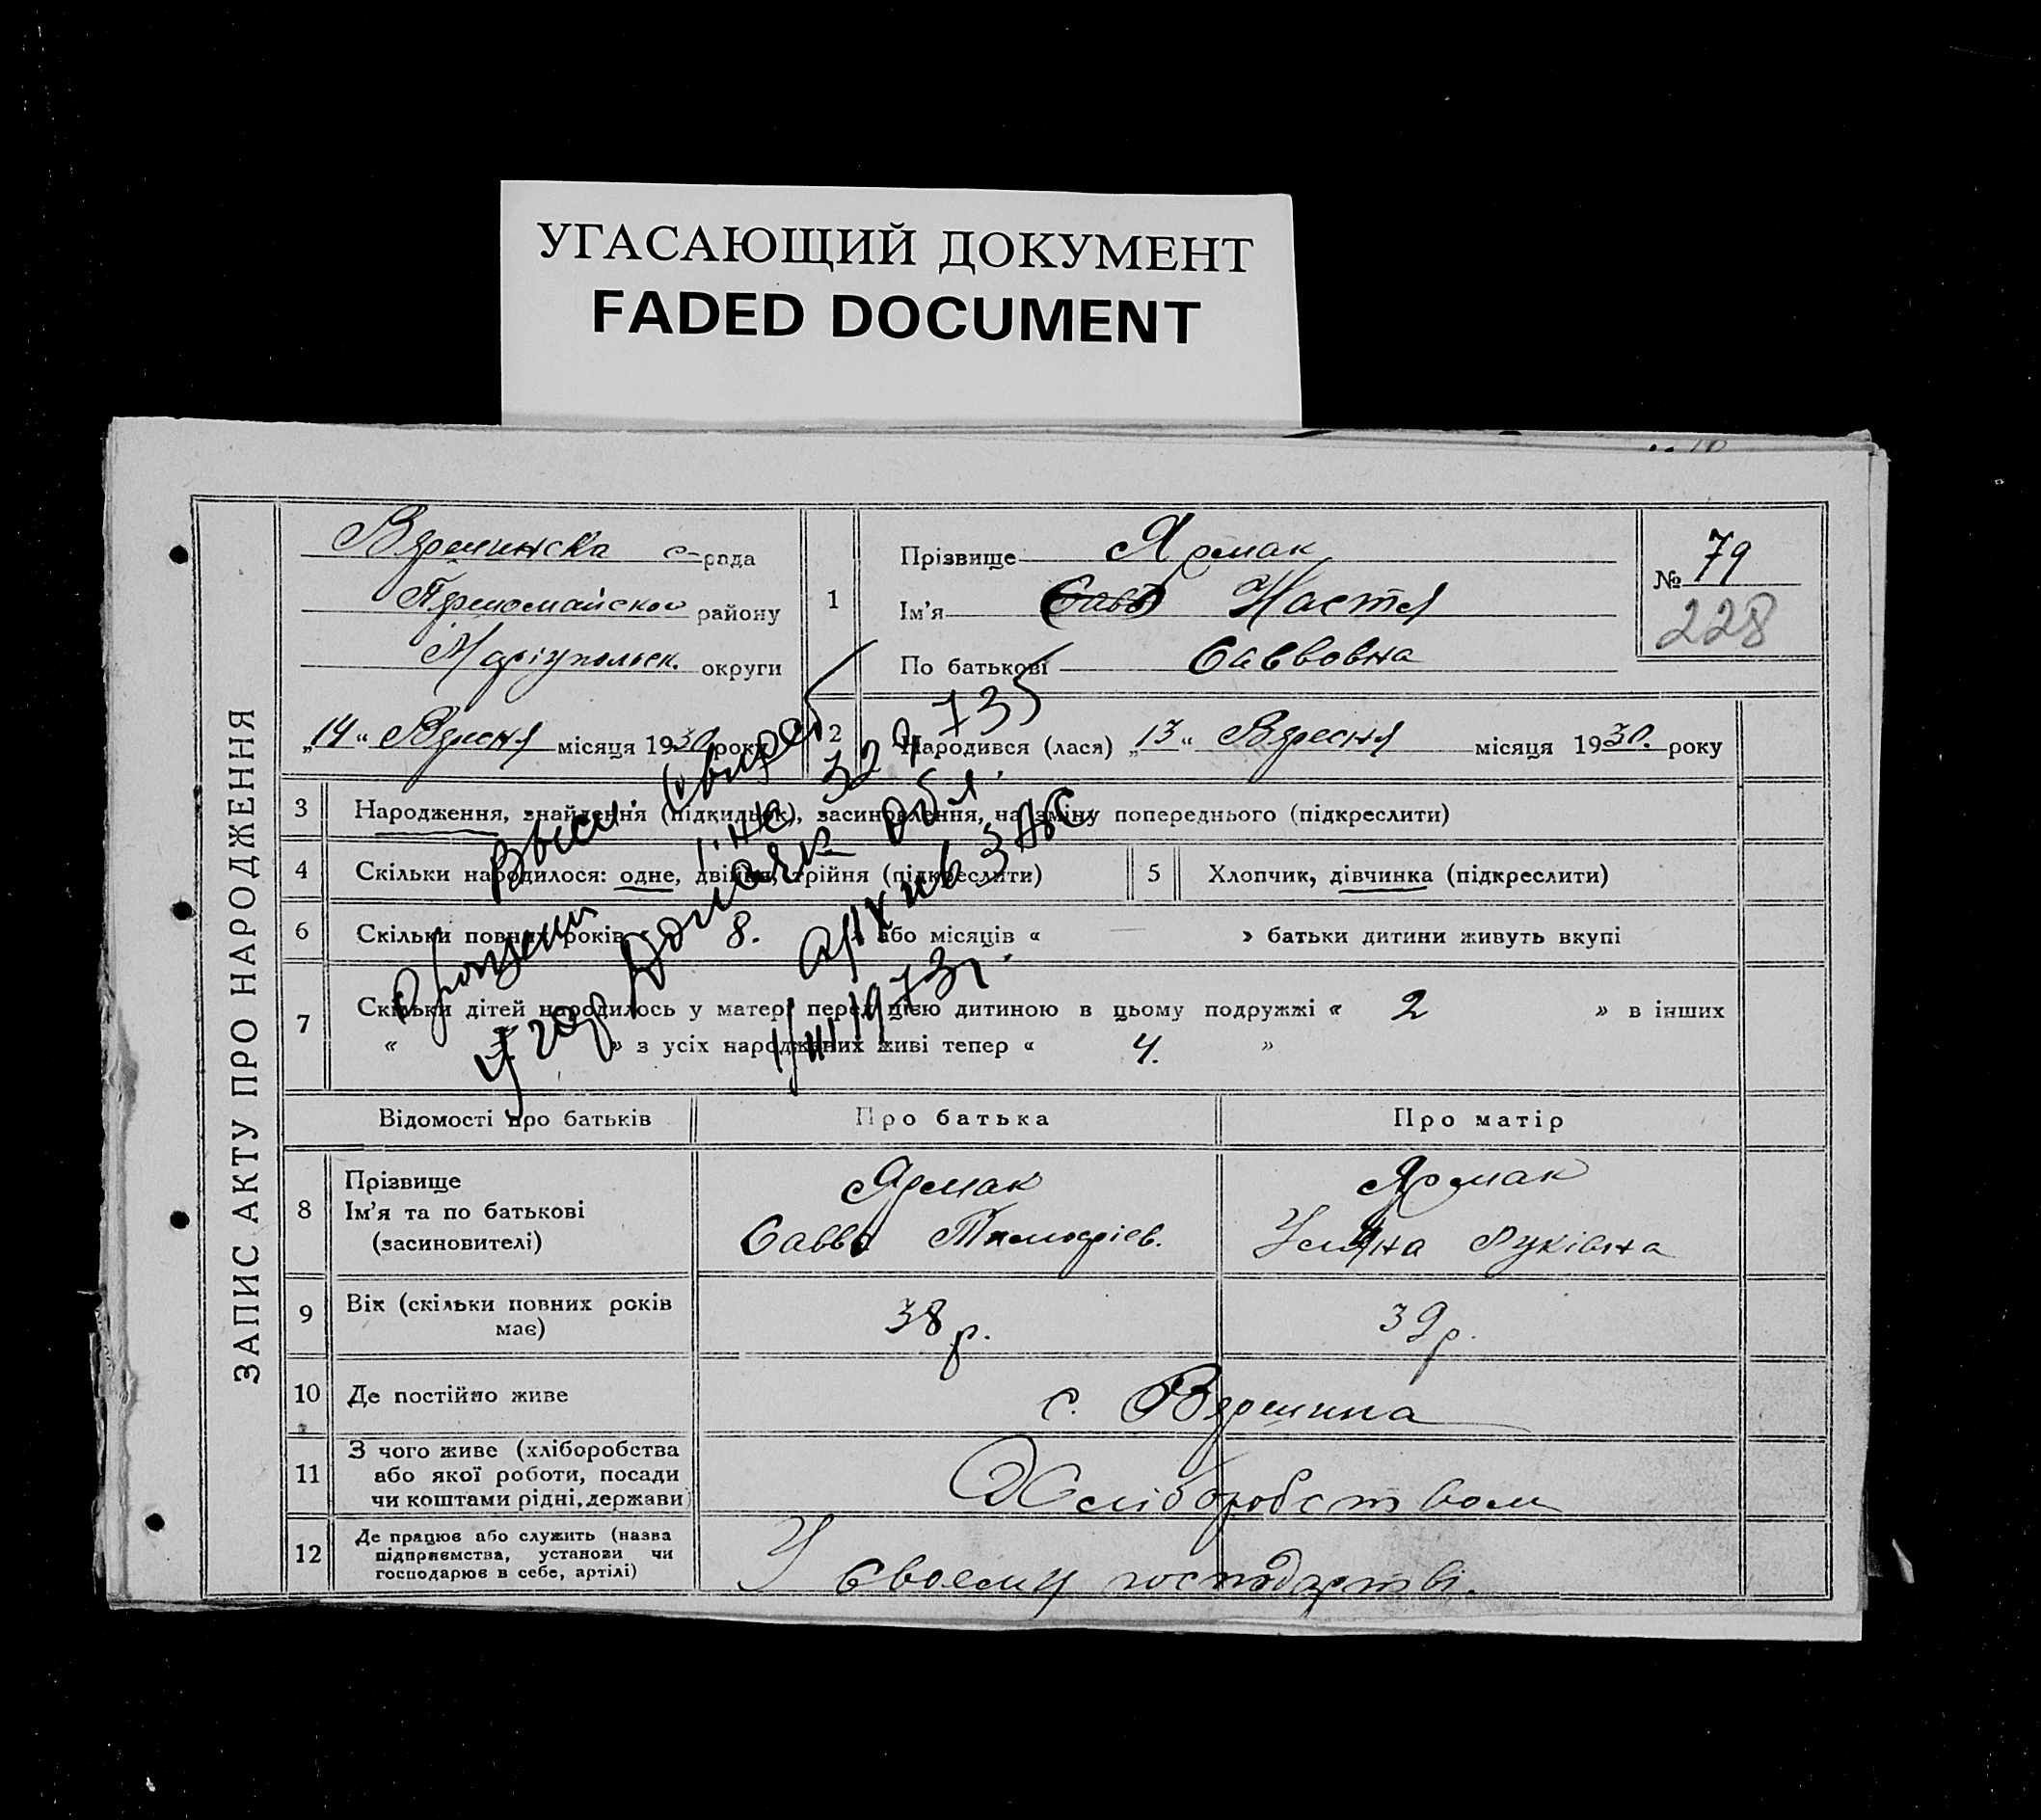 УГАСАЮЩИЙ ДОКУМЕНТ
FADED DOCUMENT
ЗАПИС АКТУ ПРО НАРОДЖЕННЯ
Вяреминська с-рада
Першомайского району
Маріупольск. округи
„14“ Вересня місяця 1930 року
1
Прізвище Ярмак
Ім’я Настя
По батькові Саввовна
№ 79
228
2
Народився (лася) „13“ Вересня місяця 1930. року
3 Народження, знайдення (підкидьок), засиновлення, на зміну попереднього (підкреслити)
4 Скільки народилося: одне, двійня, трійня (підкреслити)
5 Хлопчик, дівчинка (підкреслити)
6 Скільки повних років 8. або місяців « — » батьки дитини живуть вкупі
7 Скільки дітей народилось у матері перед цією дитиною в цьому подружжі « 2 » в інших
« » з усіх народжених живі тепер « 4. »
329735
архив ЗАГС
1/III 1973г.
Відомості про батьків
Про батька
Про матір
8 Прізвище
Ім’я та по батькові
(засиновителі)
Ярмак
Савва Тимофіев.
Ярмак
Уляна Луківна
9 Вік (скільки повних років
має)
38 р.
39 р.
10 Де постійно живе
с. Вяремина
11 З чого живе (хліборобства
або якої роботи, посади
чи коштами рідні, держави)
Хліборобством
12 Де працює або служить (назва
підприємства, установи чи
господарює в себе, артілі)
У своему господарстві.